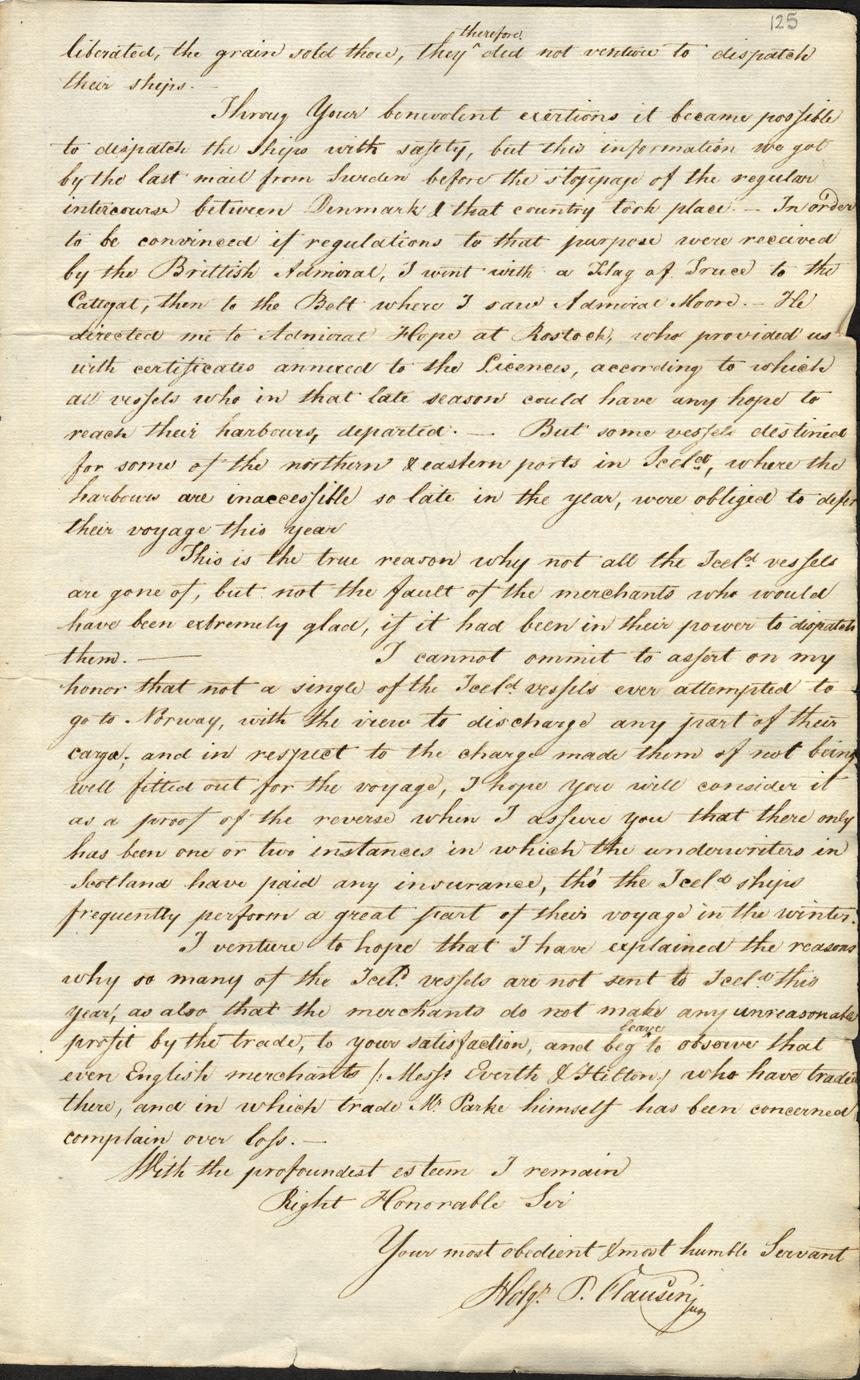 125
liberated, the grain sold there, they ^therefore did not venture to dispatch
their ships. —
Throug Your benevolent exertions it became possible
to dispatch the ships with safety, but this information we got
by the last mail from Sweden before the stoppage of the regular
intercourse between Denmark & that country took place — In order
to be convinced if regulations to that purpose were received
by the Brittish Admiral, I went with a Flag of Truce to the
Cattegat, then to the Belt where I saw Admiral Moore. — He
directed me to Admiral Hope at Rostock, who provided us
with certificates annexed to the Licences, according to which
all vessels who in that late season could have any hope to
reach their harbours, departed. — But some vessels destined
for some of the northern & eastern ports in Iceld, where the
harbours are inaccessible so late in the year, were obliged to defer
their voyage this year
This is the true reason why not all the Iceld vessels
are gone of, but not the fault of the merchants who would
have been extremely glad, if it had been in their power to dispatch
them. — I cannot ommit to assert on my
honor that not a single of the Iceld vessels ever attempted to
go to Norway, with the view to discharge any part of their
cargo; and in respect to the charge made them of not being
well fitted out for the voyage, I hope you will consider it
as a proof of the reverse when I assure you that there only
has been one or two instances in which the underwriters in
Scotland have paid any insurance, tho' the Iceld ships
frequently perform a great part of their voyage in the winter.
I venture to hope that I have explained the reasons
why so many of the Iceld vessels are not sent to Iceld this
year, as also that the merchants do not make any unreasonable
profit by the trade, to your satisfaction, and beg ^leave to observe that
even English merchants /: Messrs Everth & Hilton :/ who have traded
there, and in which trade Mr Parke himself has been concerned
complain over loss. —
With the profoundest esteem I remain
Right Honorable Sir
Your most obedient & most humble Servant
Holgr P. Clausen junr